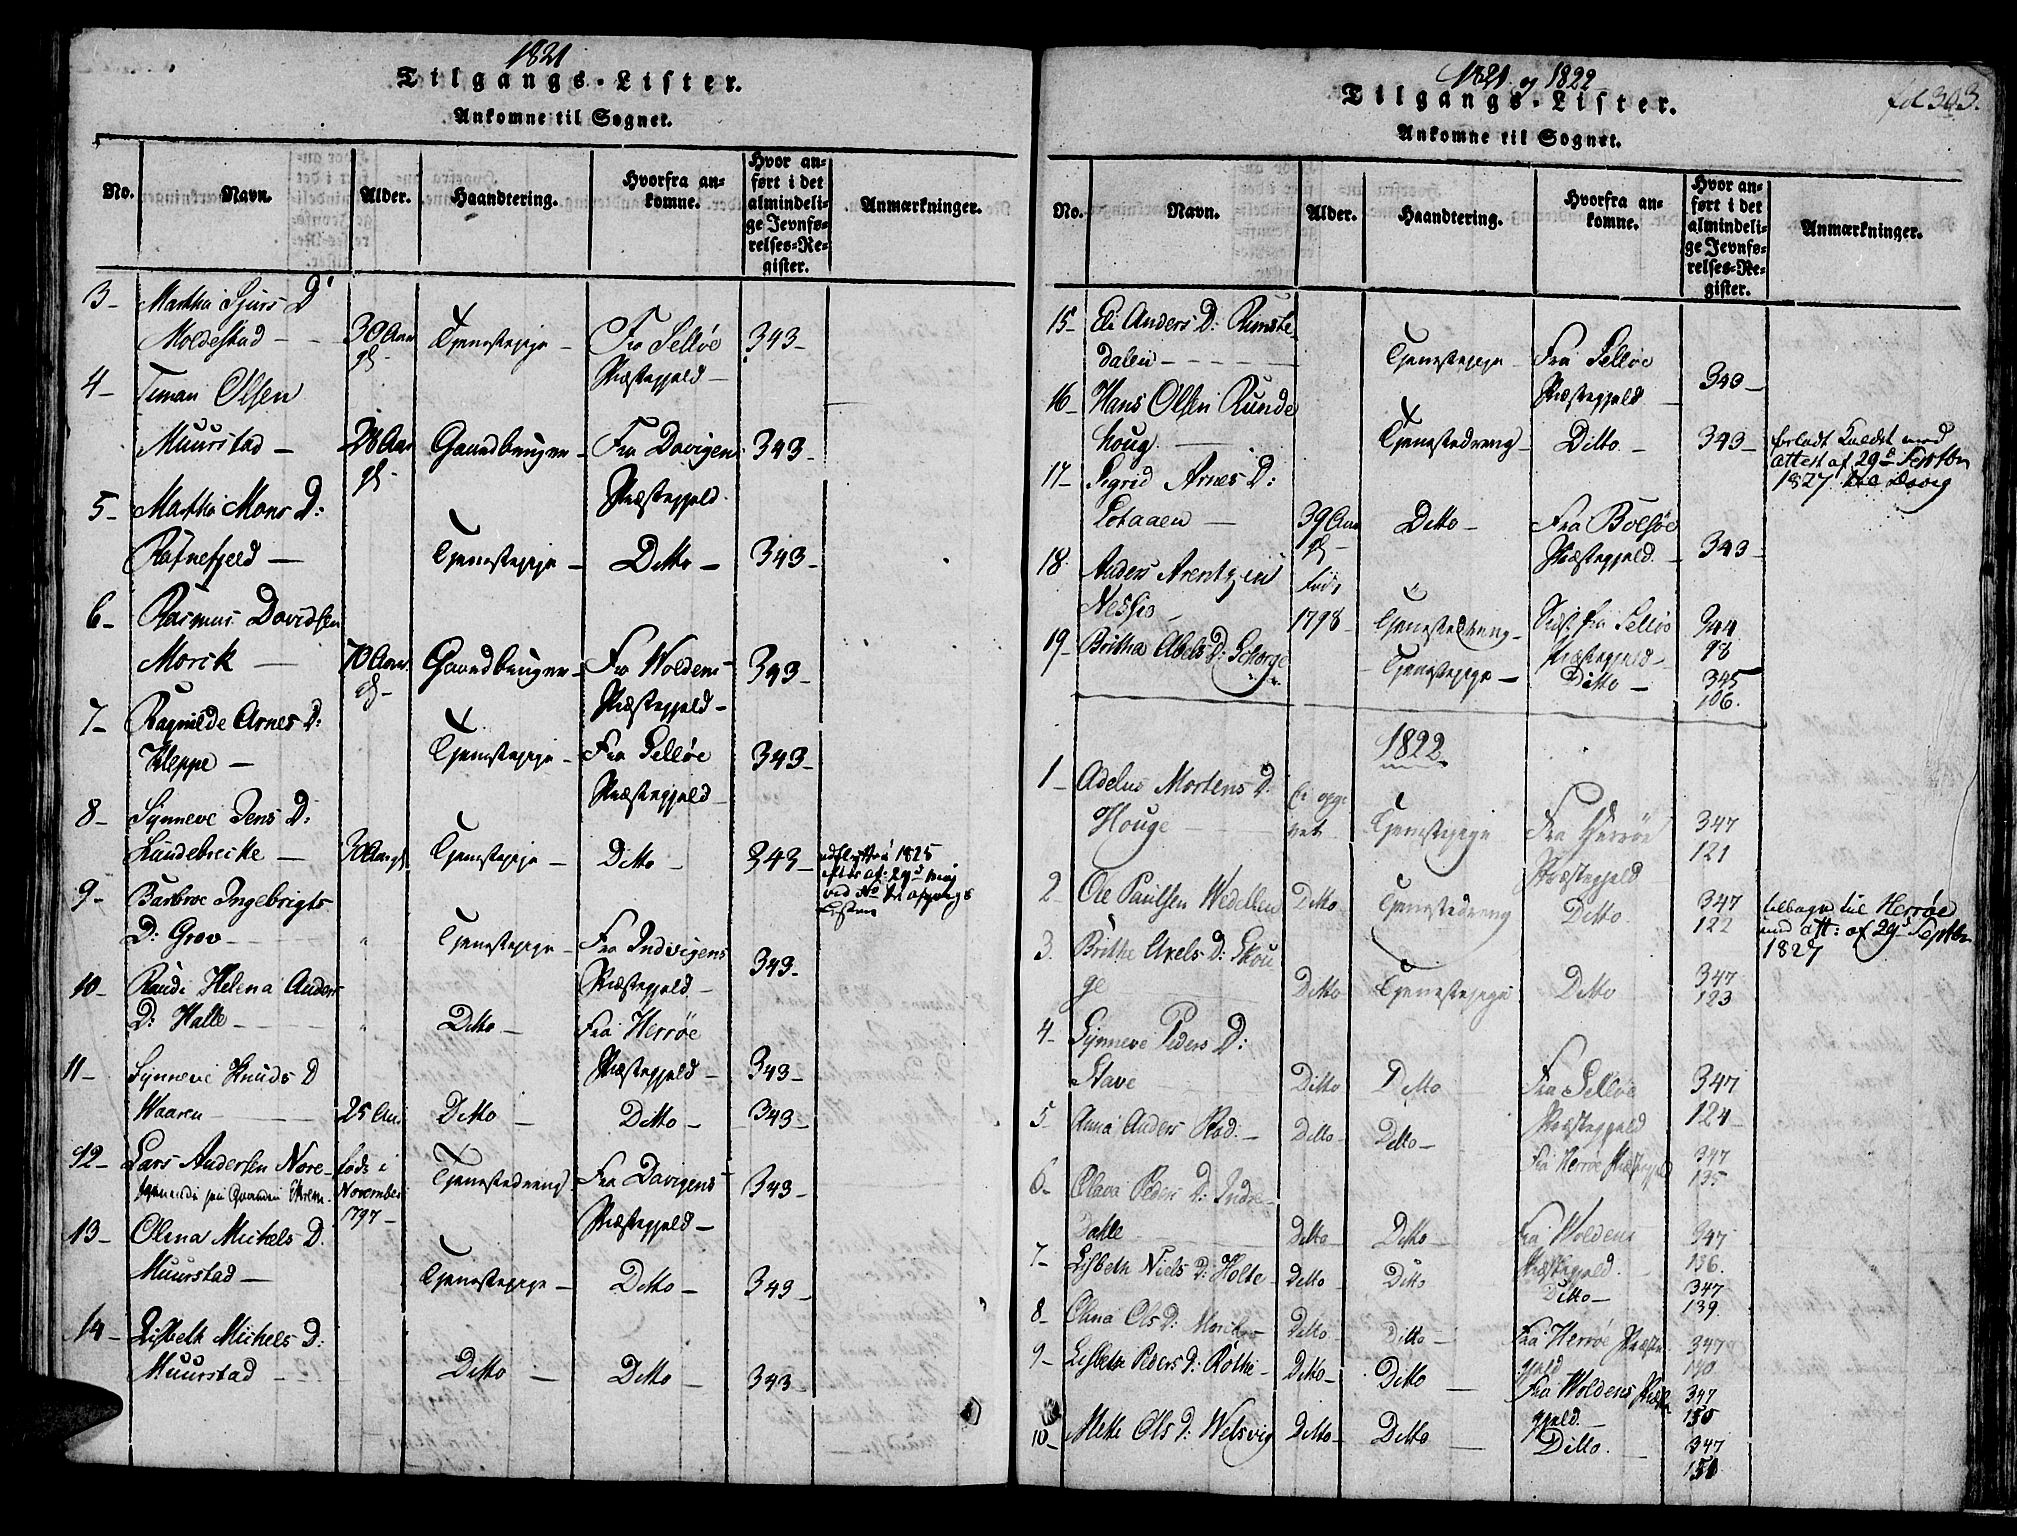 1821
Tilgangs-Lister.
Ankomne til Sognet.
No.
Navn.
Alder.
Haandtering.
Hvorfra an-
komne.
Hvor an-
ført i det
almindeli-
ge Jevnfø-
relses-Re-
gister.
Anmærkninger.
3- Martha Sjurs D
Moldestad - - 30 Aar Tjenestepige - Fra Selløe 343-
Præstegjeld -
4- Timan Olsen
Muurstad - 28 Aar Gaardbruger - Fra Davigens 343-
Præstegjeld
5- Martha Mons D:
Rafnefjeld - Tjenestepige - Ditto - 343-
6- Rasmus Davidsen
Morik - 70 Aar Gaardbruger - Fra Woldens 343-
Præstegjeld -
7- Ragnilde Arnes D:
Kleppe - Tjenestepige - Fra Selløe 343-
Præstegjeld -
8- Synneve Jens D:
Lundebrecke - 30 Aar Tjenestepige - Ditto - 343- udflyttet 1825
9- Barbroe Ingebrigts
D: Grov - Tjenestepige - Fra Indvigens 343-
Præstegjeld -
10- Randi Helena Anders
D: Halle - Ditto - Fra Herrøe
Præstegjeld - 343-
11- Synneve Knuds D
Waaren - 25 Aar Ditto - Ditto - 343-
12- Lars Andersen Nore- føds i Tjenestedreng Fra Davigens 343-
November
1797 - Præstegjeld -
13- Olina Michels D.
Muurstad - Tjenestepige - Ditto - 343-
14- Lisbeth Michels D:
Muurstad - Ditto - Ditto - 343-
1821 og 1822
fol 303.
Tilgangs-Lister.
Ankomne til Sognet.
No.
Navn.
Alder.
Haandtering.
Hvorfra an-
komne.
Hvor an-
ført i det
almindeli-
ge Jevnfø-
relses-Re-
gister.
Anmærkninger.
15- Eli Anders D: Rimste
dalen - Tjenestepige - Fra Selløe
Præstegjeld - 343-
16- Hans Olsen Runde
houg - Tjenestedreng - Ditto - 343- forladt Kaldet med
Attest af 29d Septbr
1827 til Davig
17- Sigrid Arnes D:
Lotaaen - 39 Aar Ditto - Fra Bolsøe
Præstegjeld - 343-
18. Anders Arentzen Føds
Nessio - 1798 Tjenestedreng - fra Selløe 344
Præstegjeld - 98
19- Brithe Abels D: Schorge Tjenestepige - Ditto - 345
106.
1822
1- Adelus Mortens D. Ei opgi
Houge - vet Tjenestepige Fra Herrøe 347
Præstegjeld 121
2 Ole Paulsen Wedellen Ditto Tjenestedreng Ditto 347
122 tilbage til Herrøe
med Att: af 29d Septbr
1827
3. Brithe Axels D: Skou
ge Ditto Tjenestepige Ditto 347
123
4- Synneve Peders D:
Stave Ditto Ditto Fra Selløe 347
Præstegjeld 124
5 Anna Anders Rad. - Ditto - Ditto - Fra Herrøe Præstegjeld 347
135
6- Olava Peders D: Indre-
Dahle Ditto Ditto - Fra Woldens 347
Præstegjeld 136.
7- Lisbeth Niels D: Holte - Ditto Ditto Ditto - 347
139.
8- Olina Ols D: Ditto Ditto - Fra Herrøe Præste 347
gjeld 140
9- Lisbethe Peders D: Rothe - Ditto - Ditto - Fra Woldens Præste 347
gjeld. - 150
10- Mette Ols D: Welsvig Ditto - Ditto - Ditto. 347
151